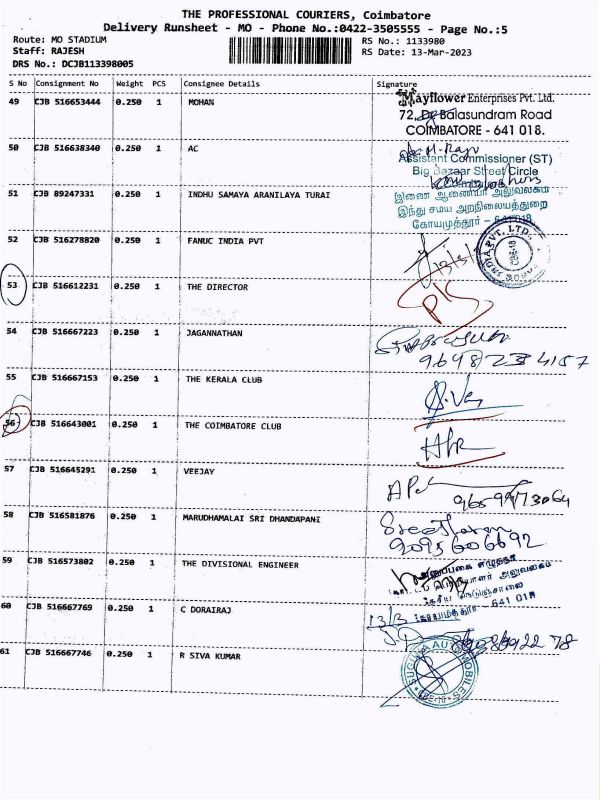 THE PROFESSIONAL COURIERS, Coimbatore
Delivery Runsheet - MO - Phone No.:0422-3505555 - Page No.:5
Route: MO STADIUM
RS No.: 1133980
Staff: RAJESH
RS Date: 13-Mar-2023
DRS No.: DCJB113398005
S No Consignment No Weight PCS Consignee Details Signature
49 CJB 516653444 0.250 1 MOHAN
Mayflower Enterprises Pvt. Ltd.
72, Dr Balasundram Road
COIMBATORE - 641 018.
50 CJB 516638340 0.250 1 AC
Assistant Commissioner (ST)
Big Bazaar Street Circle
51 CJB 89247331 0.250 1 INDHU SAMAYA ARANILAYA TURAI
இணை ஆணையர் அலுவலகம்
இந்து சமய அறநிலையத்துறை
கோயமுத்தூர் - 641018
52 CJB 516278820 0.250 1 FANUC INDIA PVT
INDIA PVT. LTD.
53 CJB 516612231 0.250 1 THE DIRECTOR
54 CJB 516667223 0.250 1 JAGANNATHAN
55 CJB 516667153 0.250 1 THE KERALA CLUB
56 CJB 516643001 0.250 1 THE COIMBATORE CLUB
57 CJB 516645291 0.250 1 VEEJAY
58 CJB 516581876 0.250 1 MARUDHAMALAI SRI DHANDAPANI
9095606692
59 CJB 516573802 0.250 1 THE DIVISIONAL ENGINEER
60 CJB 516667769 0.250 1 C DORAIRAJ
13/3
61 CJB 516667746 0.250 1 R SIVA KUMAR